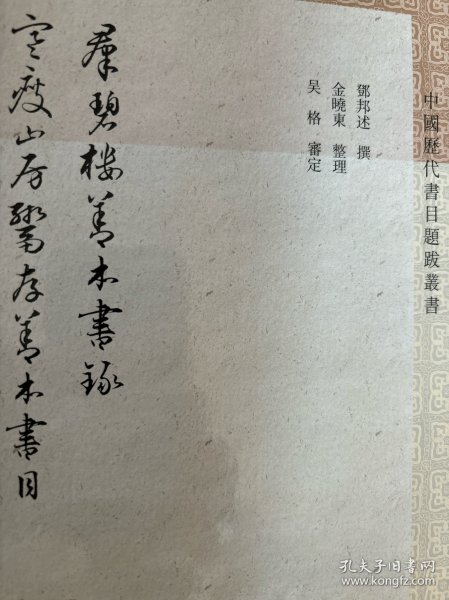 中國歷代書目題跋叢書
鄧邦述 撰
金曉東 整理
吳格 審定
羣碧樓善本書錄
寒瘦山房鬻存善本書目
孔夫子旧书网
www.kongfz.com